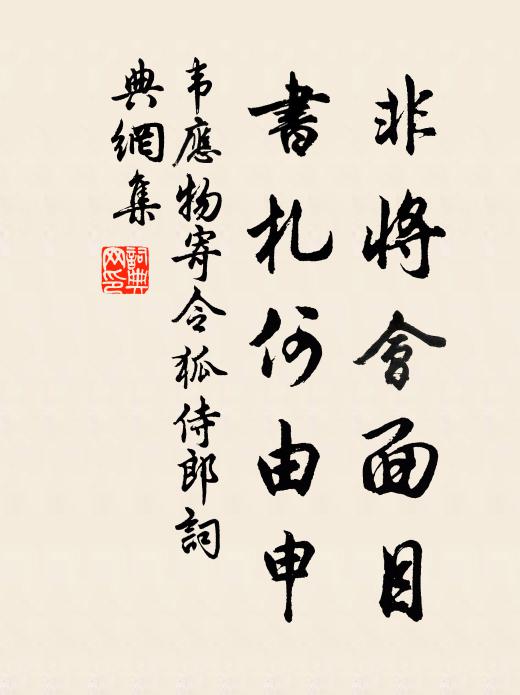 非將會面目
書札何由申
韦應物寄令狐侍郎詞
典網集
詞典
网印